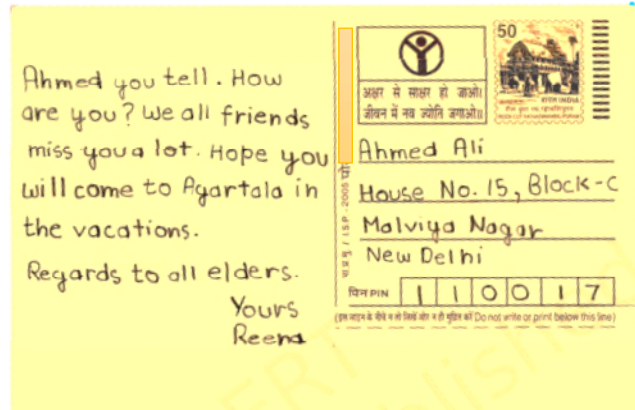 Ahmed you tell. How
are you? We all friends
miss you a lot. Hope you
will come to Agartala in
the vacations.
Regards to all elders.
Yours
Reena
अक्षर से साक्षर हो जाओ।
जीवन में नव ज्योति जगाओ॥
50
भारत INDIA
Ahmed Ali
House No. 15, Block-C
Malviya Nagar
New Delhi
पिन PIN 1 1 0 0 1 7
(इस लाइन के नीचे न तो लिखें और न ही मुद्रित करें Do not write or print below this line)